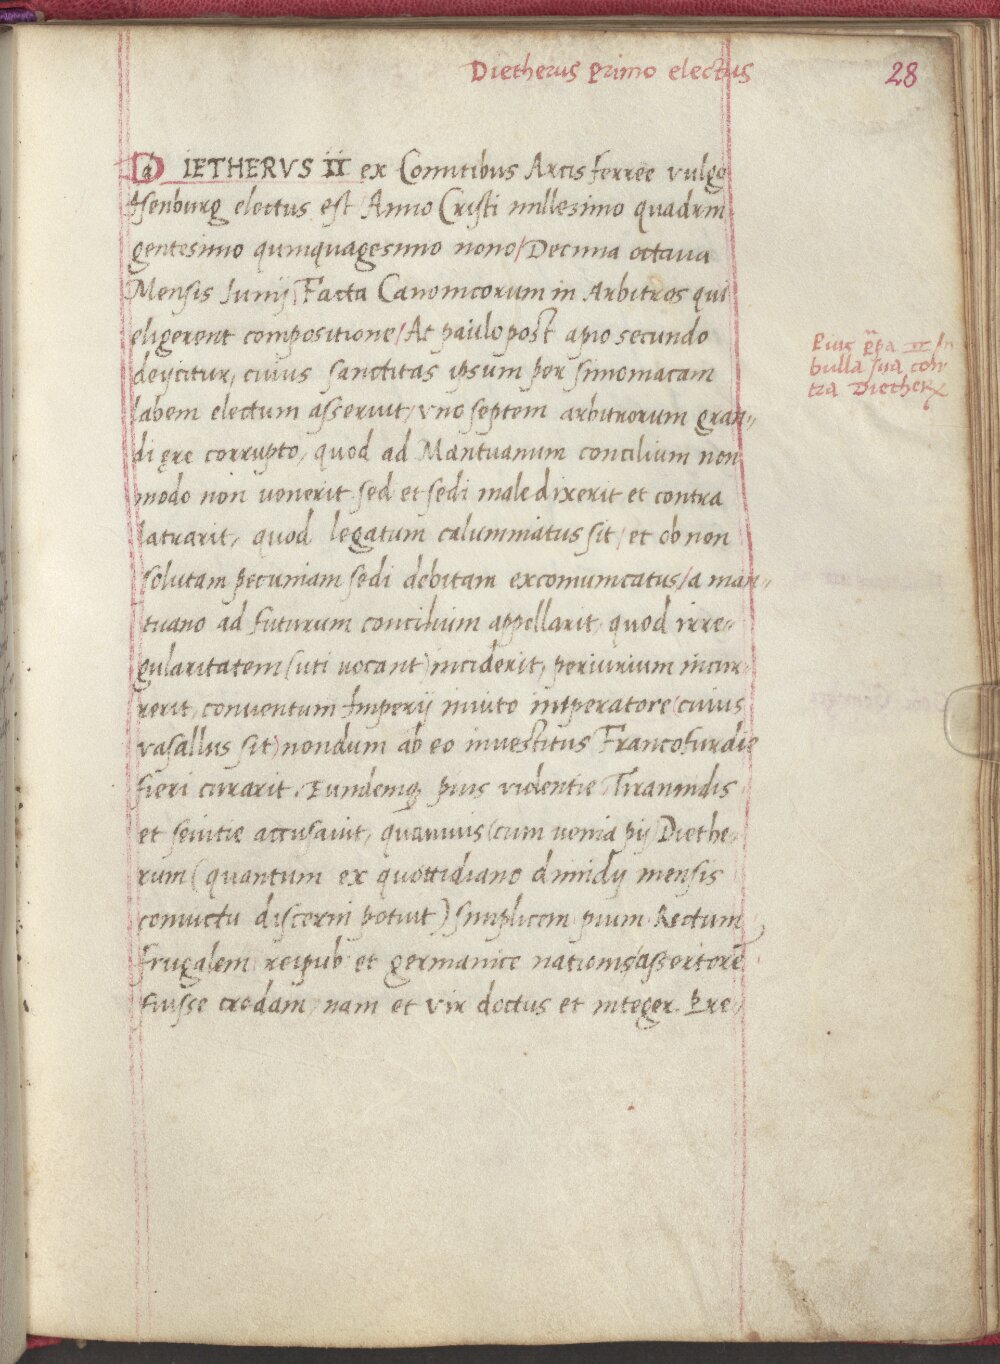 Dietherus primo electus
28
DIETHERVS II ex Comitibus Arcis ferree vulgo
Isenburg electus est / Anno Cristi millesimo quadrin
gentesimo quinquagesimo nono / Decima octaua
Mensis Iunij, Facta Canonicorum in Arbitros qui
eligerent compositione / At paulo post a pio secundo
deijcitur, cuius sanctitas ipsum per simoniacam
labem electum asseruit, vno septem arbitrorum gran-
di ęre corrupto, quod ad Mantuanum concilium non
modo non uenerit sed et sedi maledixerit et contra
latrarit, quod legatum calumniatus sit / et ob non
solutam pecuniam sedi debitam excomunicatus / a man-
tuano ad futurum concilium appellarit, quod irre-
gularitatem (uti uocant) inciderit, periurium incur-
rerit, conuentum Imperij inuito imperatore (cuius
vasallus sit) nondum ab eo inuestitus Francofurdie
fieri curarit. Eundemq; pius violentie Tirannidis
et seuitie accusauit, quamuis (cum uenia pij) Diethe-
rum (quantum ex quottidiano dimidij mensis
conuictu discerni potuit) simplicem pium Rectum
frugalem reipub et germanice nationis assertorē
fuisse credam, nam et vir doctus et integer. Pre-
Pius p̄pa II In
bulla sua con
tra Diether